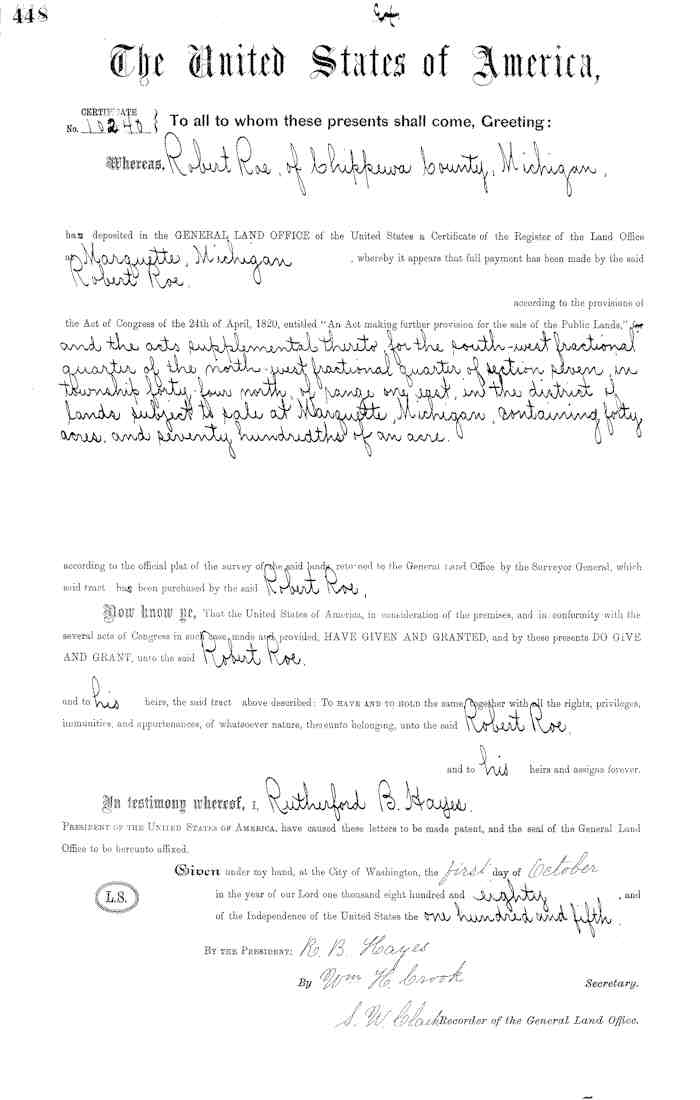 448
The United States of America,
CERTIFICATE
No. 10240 } To all to whom these presents shall come, Greeting:
Whereas, Robert Roe, of Chippewa County, Michigan,
has deposited in the GENERAL LAND OFFICE of the United States a Certificate of the Register of the Land Office
at Marquette, Michigan , whereby it appears that full payment has been made by the said
Robert Roe.
according to the provisions of
the Act of Congress of the 24th of April, 1820, entitled "An Act making further provision for the sale of the Public Lands," for
and the acts supplemental thereto for the south-west fractional
quarter of the north-west fractional quarter of section seven, in
township forty-four north, of range one east, in the district of
lands subject to sale at Marquette, Michigan, containing forty
acres, and seventy hundredths of an acre.
according to the official plat of the survey of the said lands, returned to the General Land Office by the Surveyor General, which
said tract has been purchased by the said Robert Roe,
Now know ye, That the United States of America, in consideration of the premises, and in conformity with the
several acts of Congress in such case made and provided, HAVE GIVEN AND GRANTED, and by these presents DO GIVE
AND GRANT, unto the said Robert Roe.
and to his heirs, the said tract above described: TO HAVE AND TO HOLD the same, together with all the rights, privileges,
immunities, and appurtenances, of whatsoever nature, thereunto belonging, unto the said Robert Roe,
and to his heirs and assigns forever.
In testimony whereof, I, Rutherford B. Hayes.
PRESIDENT OF THE UNITED STATES OF AMERICA, have caused these letters to be made patent, and the seal of the General Land
Office to be hereunto affixed.
Given under my hand, at the City of Washington, the first day of October
L.S. in the year of our Lord one thousand eight hundred and eighty , and
of the Independence of the United States the one hundred and fifth.
BY THE PRESIDENT: R. B. Hayes
By Wm H. Crook Secretary.
S. W. Clark Recorder of the General Land Office.